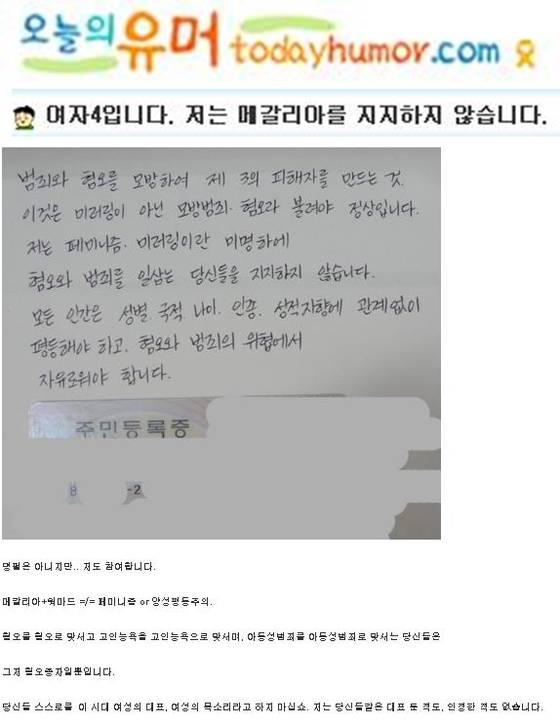 오늘의유머 todayhumor.com
여자4입니다. 저는 메갈리아를 지지하지 않습니다.
범죄와 혐오를 모방하여 제 3의 피해자를 만드는 것.
이것은 미러링이 아닌 모방범죄. 혐오라 불려야 정상입니다.
저는 페미니즘. 미러링이란 미명하에
혐오와 범죄를 일삼는 당신들을 지지하지 않습니다.
모든 인간은 성별. 국적. 나이. 인종. 성적지향에 관계없이
평등해야 하고, 혐오와 범죄의 위협에서
자유로워야 합니다.
주민등록증
8 -2
명필은 아니지만... 저도 참여합니다.
메갈리아+워마드 =/= 페미니즘 or 양성평등주의.
혐오를 혐오로 맞서고 고인능욕을 고인능욕으로 맞서며, 아동성범죄를 아동성범죄로 맞서는 당신들은
그저 혐오종자일뿐입니다.
당신들 스스로를 이 시대 여성의 대표, 여성의 목소리라고 하지 마십쇼. 저는 당신들같은 대표 둔 적도, 인정한 적도 없습니다.